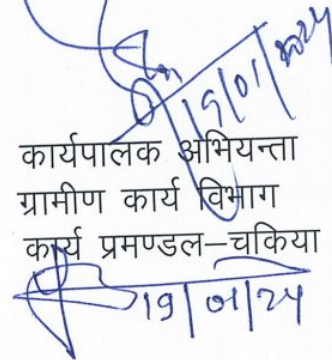 19/01/2024
कार्यपालक अभियन्ता
ग्रामीण कार्य विभाग
कार्य प्रमण्डल–चकिया
19/01/24